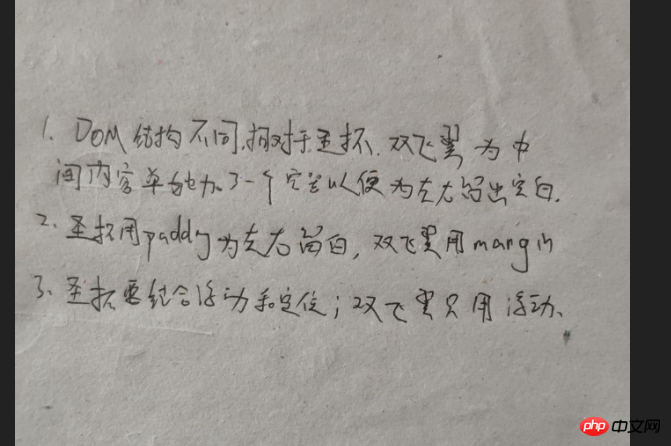 1. DOM结构不同.相对于圣杯.双飞翼为中
间内容单独加了一个容器以便为左右留出空白.
2. 圣杯用paddg为左右留白,双飞翼用margin
3. 圣杯要结合浮动和定位;双飞翼只用浮动.
php 中文网